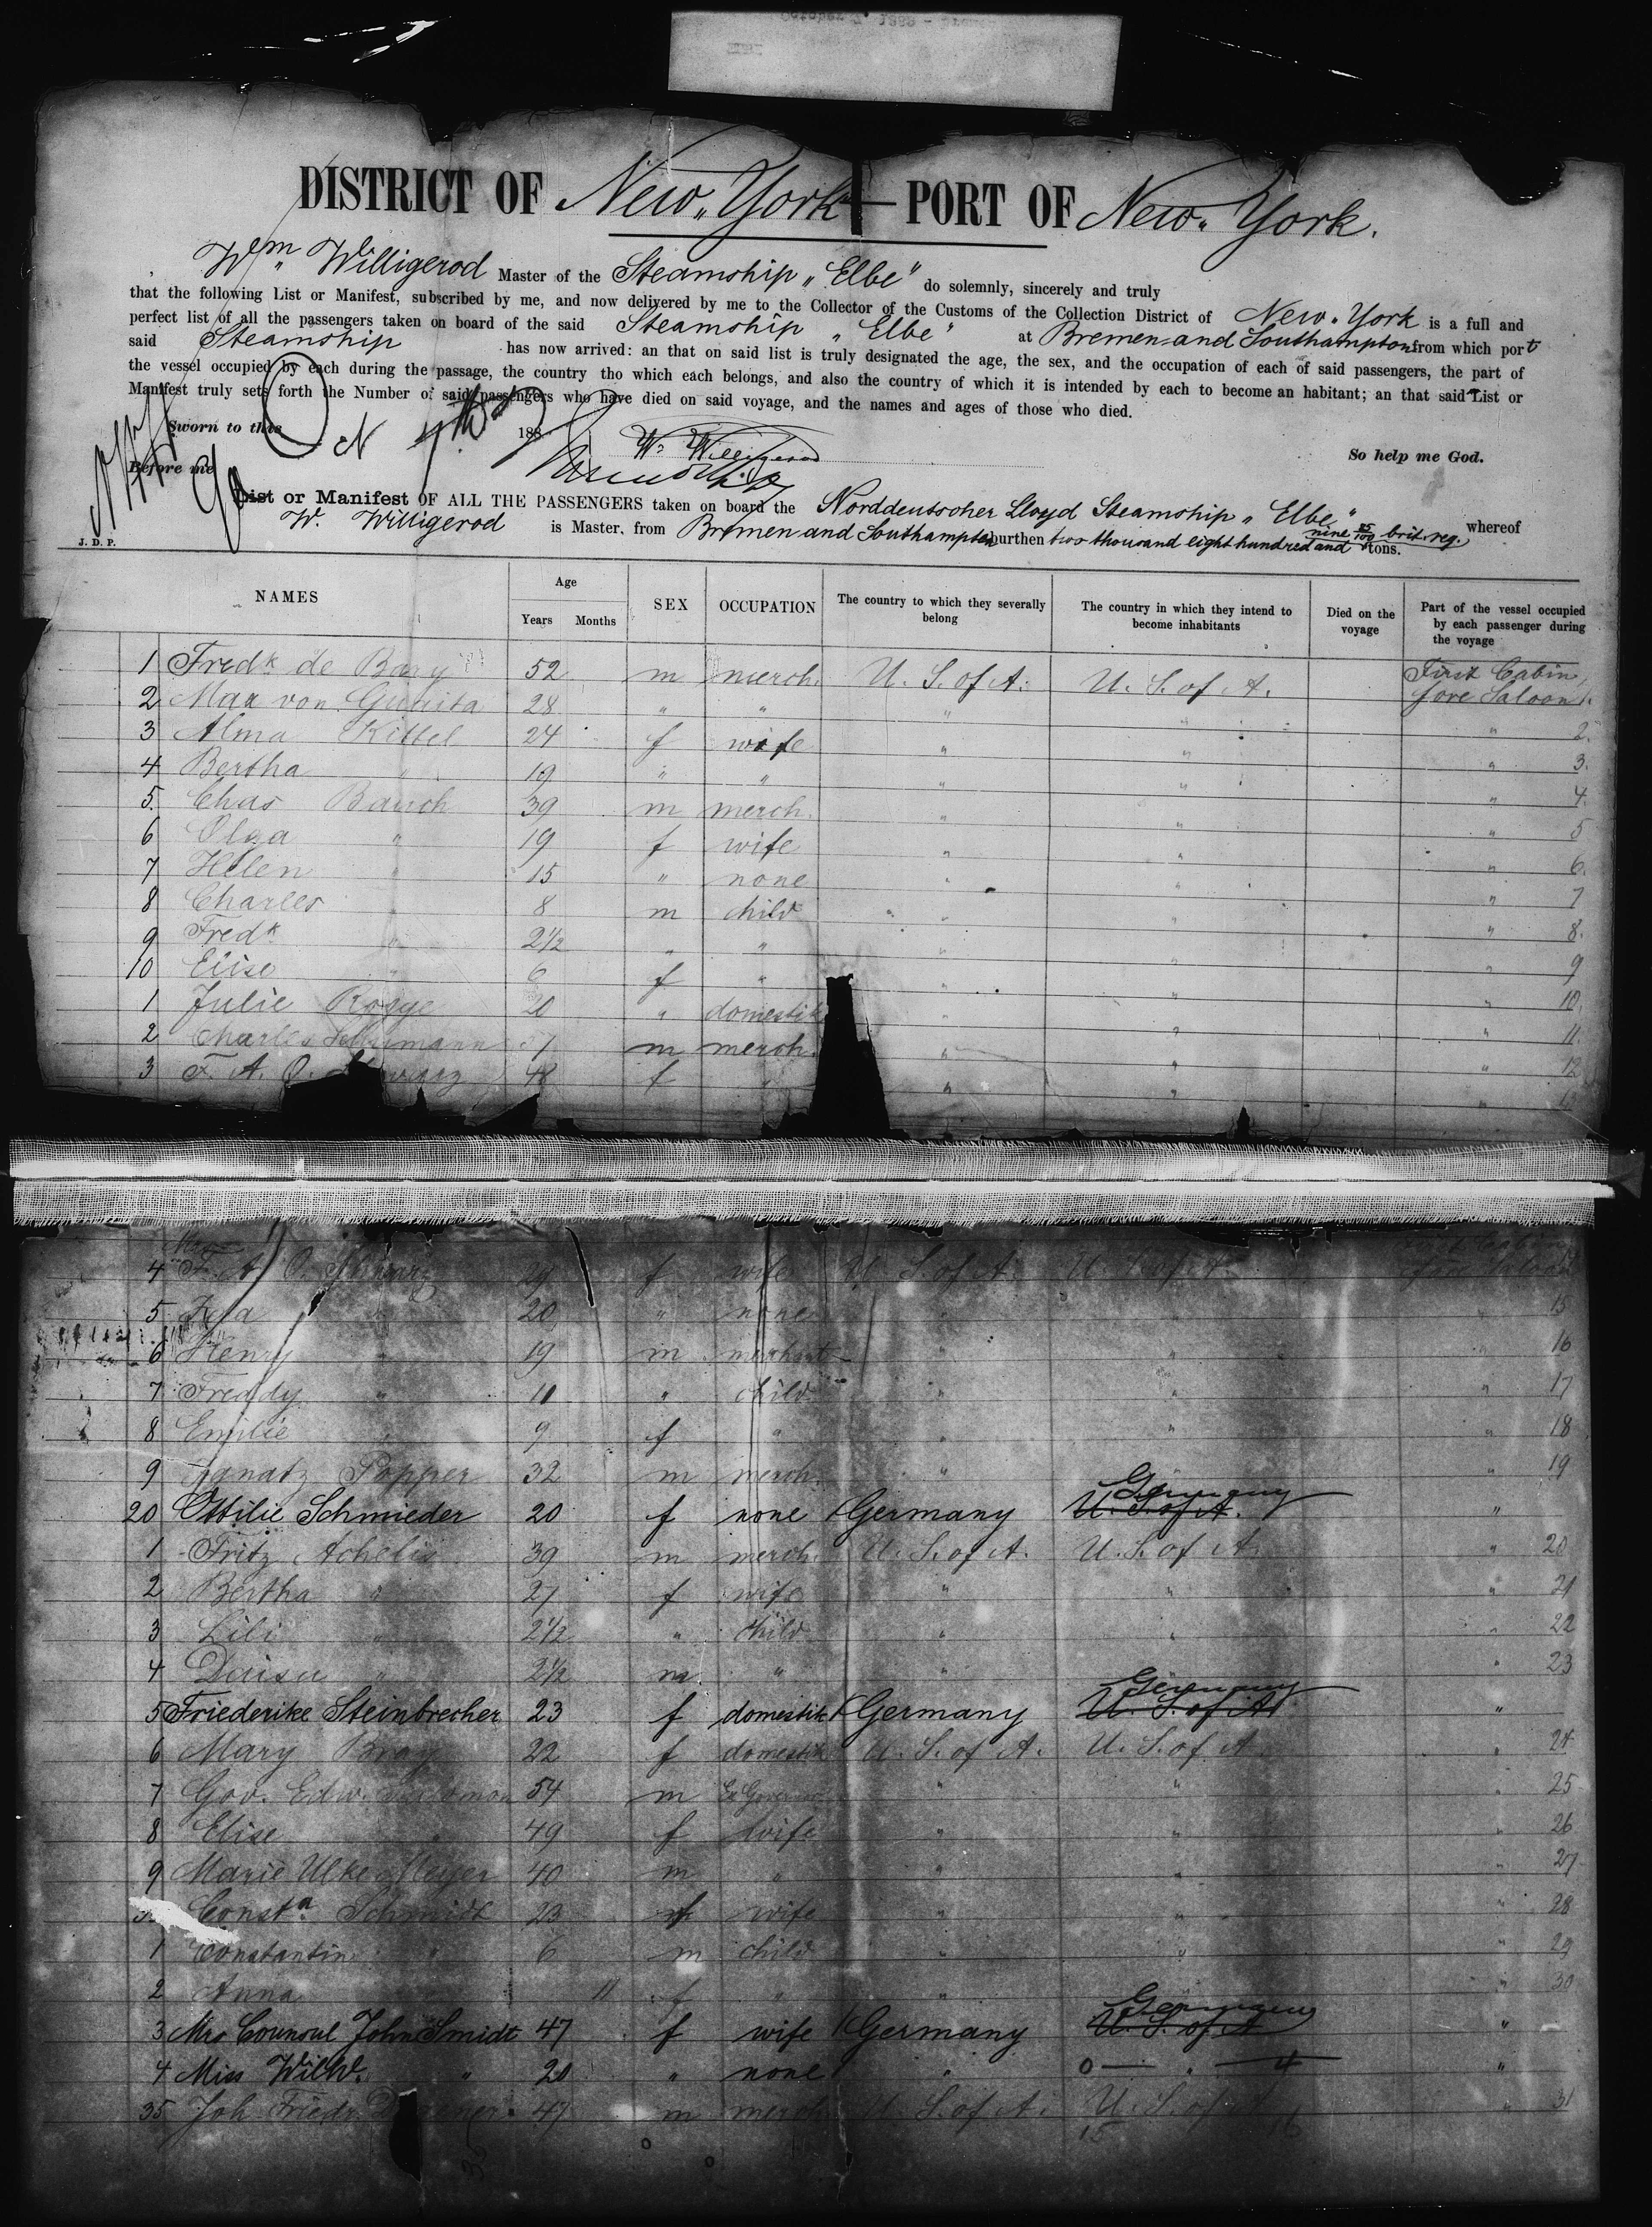 DISTRICT OF New York — PORT OF New York.
Wm Willigerod Master of the Steamship „Elbe" do solemnly, sincerely and truly
that the following List or Manifest, subscribed by me, and now delivered by me to the Collector of the Customs of the Collection District of New York is a full and
perfect list of all the passengers taken on board of the said Steamship „Elbe" at Bremen and Southampton from which port
said Steamship has now arrived: an that on said list is truly designated the age, the sex, and the occupation of each of said passengers, the part of
the vessel occupied by each during the passage, the country tho which each belongs, and also the country of which it is intended by each to become an habitant; an that said List or
Manifest truly sets forth the Number of said passengers who have died on said voyage, and the names and ages of those who died.
Sworn to this 188
W. Willigerod
So help me God.
Before me
List or Manifest OF ALL THE PASSENGERS taken on board the Norddeutscher Lloyd Steamship „Elbe" whereof
W. Willigerod is Master, from Bremen and Southampton burthen two thousand eight hundred and nine 25/100 brit. reg. tons.
J. D. P.
NAMES Age Years Months SEX OCCUPATION The country to which they severally belong The country in which they intend to become inhabitants Died on the voyage Part of the vessel occupied by each passenger during the voyage
1 Fredk de Bary 52 m merch. U. S. of A. U. S. of A. First Cabin fore Saloon 1.
2 Max von 28 " " " " " 2.
3 Alma Kittel 24 f wife " " " 3.
4 Bertha " 19 " " " " " 4.
5. Chas Bauch 39 m merch. " " " 5
6 Olga " 19 f wife " " " 6.
7 Helen " 15 " none " " " 7
8 Charles " 8 m child " " " 8.
9 Fredk " 2½ " " " " " 9
10 Elise " 6 f " " " " 10.
1 Julie Rogge 20 " domestik " " " 11.
2 Charles m merch. " " " 12
3 F. A. O. 48 f " " " "
4 F. A. O. Schwarz 29 f wife U. S. of A. U. S. of A.
5 Ida " 20 " none " " " 15
6 Henry " 19 m merchant " " " 16
7 Freddy " 11 " child " " " 17
8 Emilie " 9 f " " " " 18
9 Ignatz Popper 32 m merch. " " " 19
20 Ottilie Schmieder 20 f none Germany U. S. of A. Germany "
1 Fritz Achelis 39 m merch. U. S. of A. U. S. of A. " 20
2 Bertha " 27 f wife " " " 21
3 Lili " 2½ " child " " " 22
4 " 2½ m. " " " 23
5 Friederike Steinbrecher 23 f domestik Germany U. S. of A. Germany "
6 Mary Bray 22 f domestik U. S. of A. U. S. of A. " 24
7 Gov. Edw. Salomon 54 m Ex Governor " " " 25
8 Elise " 49 f wife " " " 26
9 Marie Ulke Meyer 40 m " " " " 27
Consta Schmidt 23 f wife " " " 28
1 Constantin " 6 m child " " " 29
2 Anna 11 f " " " 30
3 Mrs Counsul John Smidt 47 f wife Germany U. S. of A. Germany "
4 Miss Wilhe. " 20 " none " " "
35 Joh. Friedr. 47 m merch. U. S. of A. U. S. of A. " 31